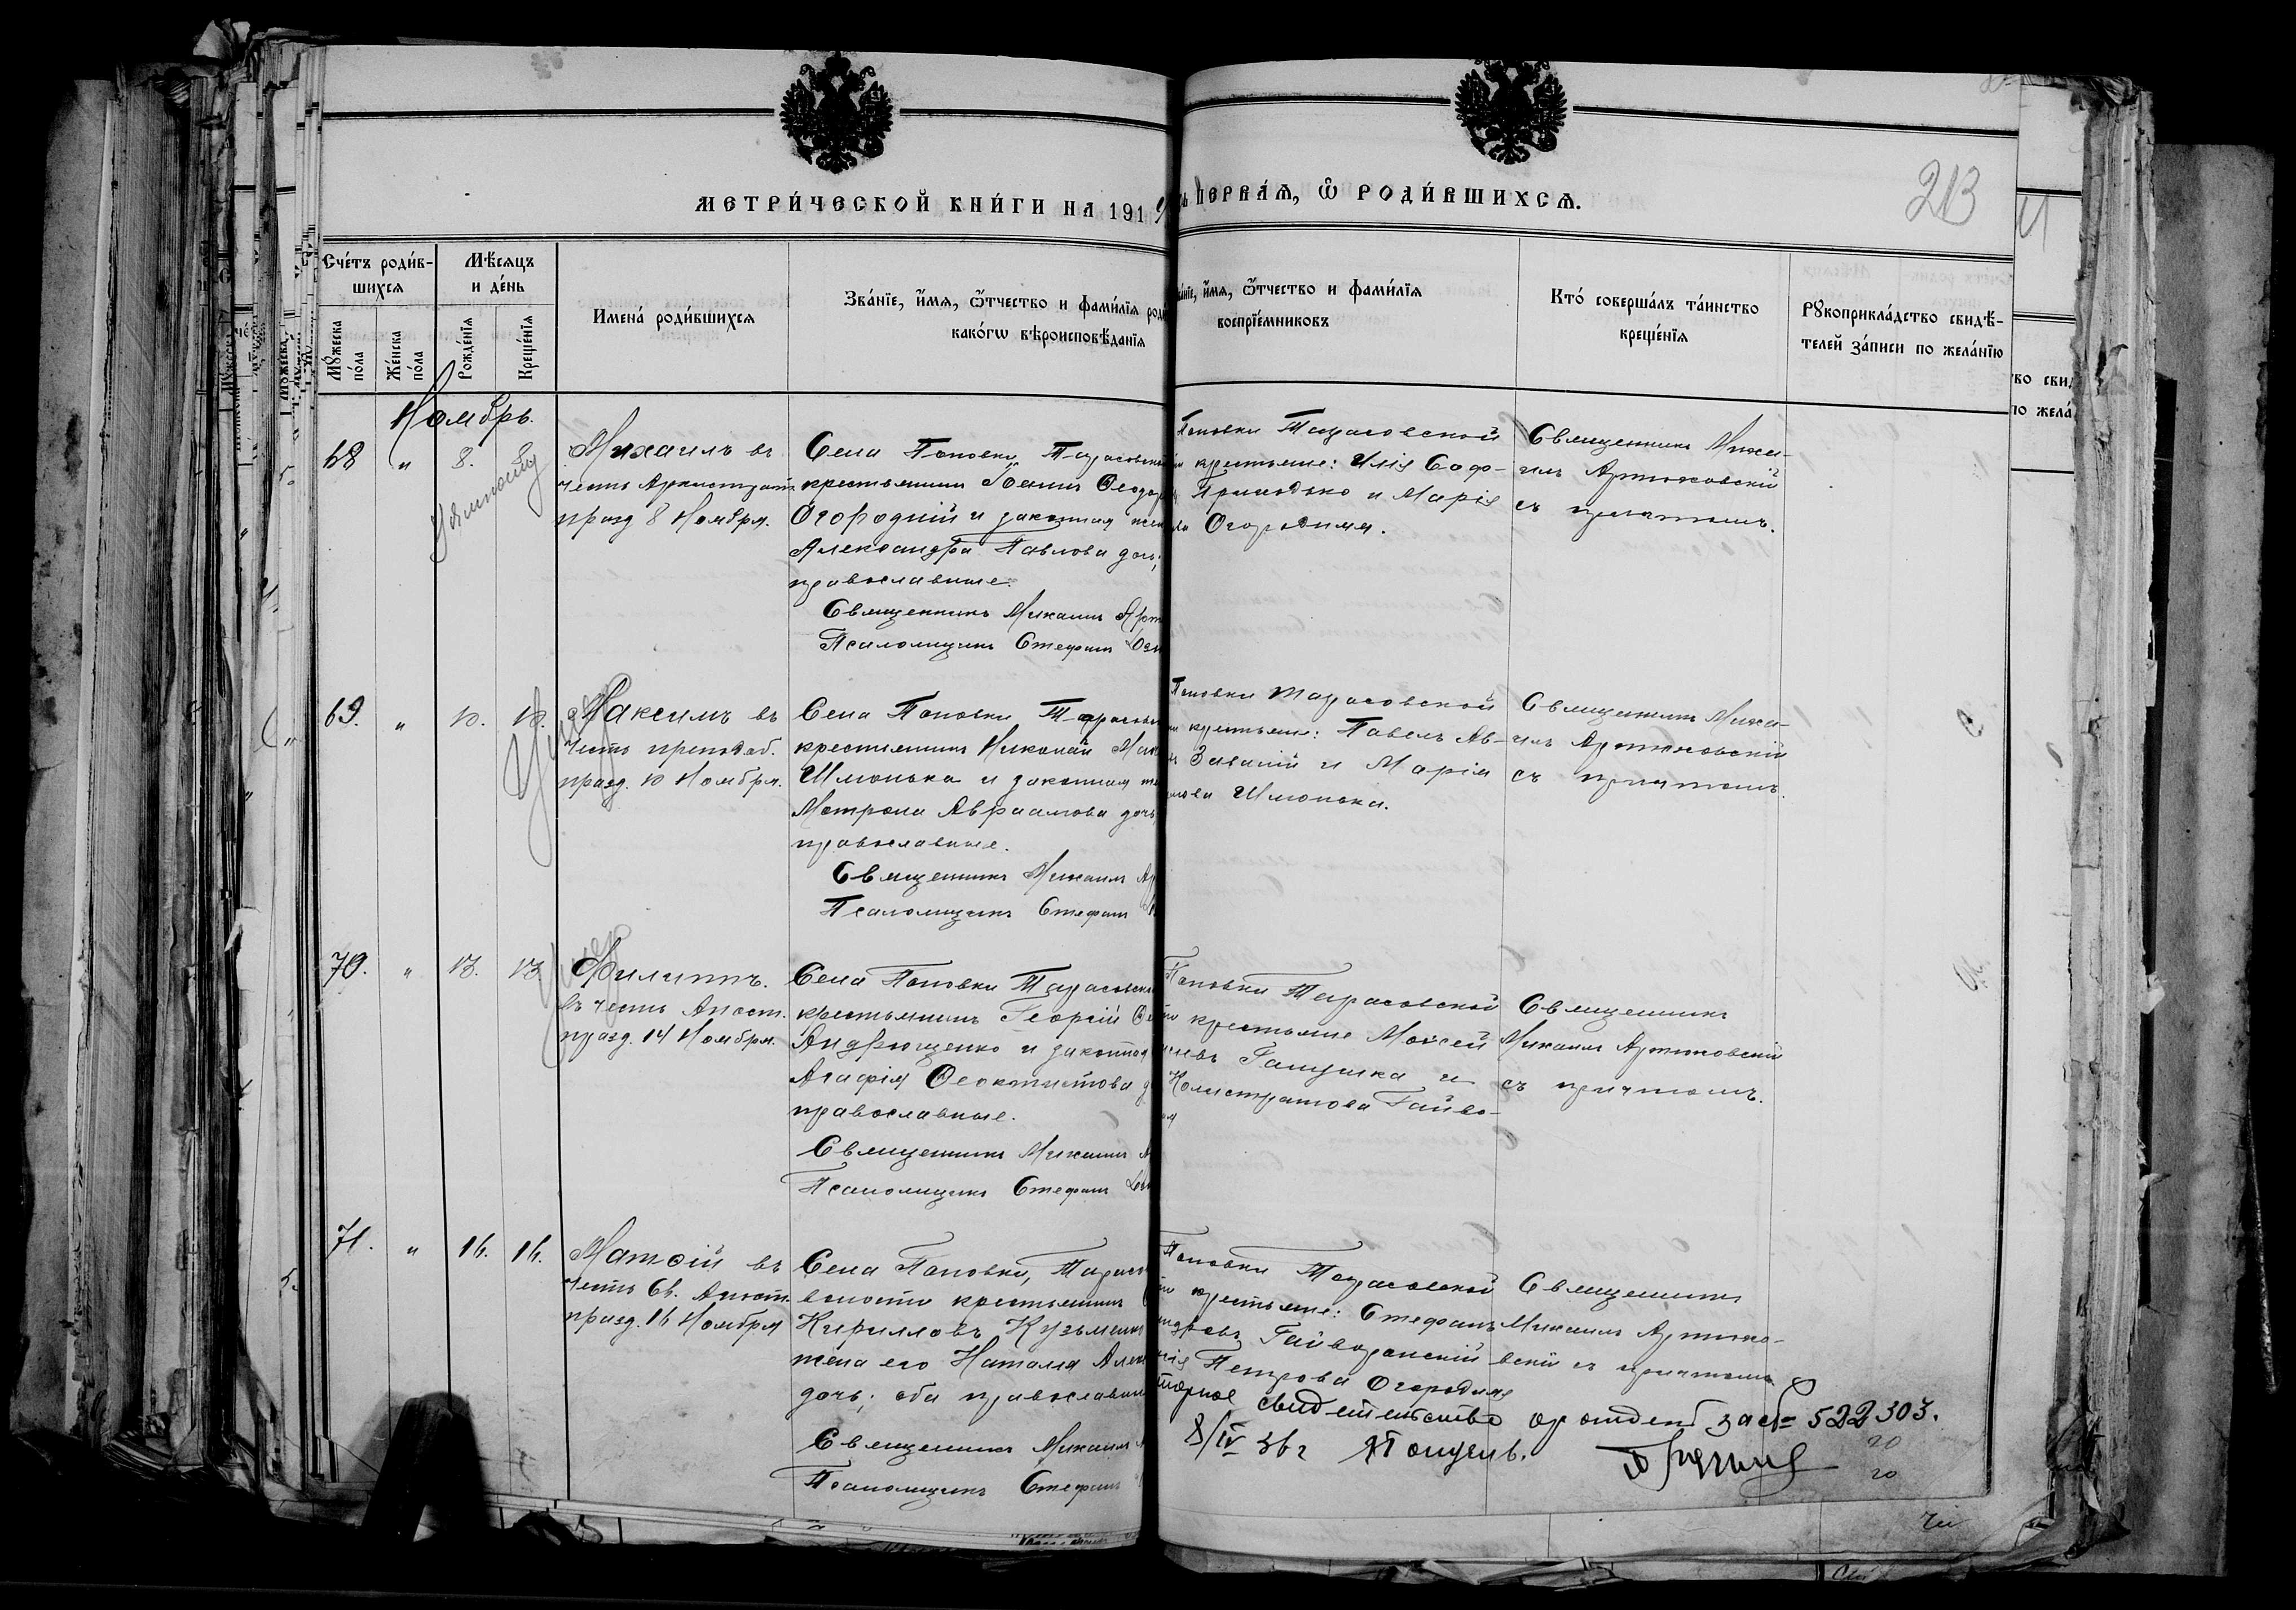 МЕТРИ́ЧЕСКОЙ КНИ́ГИ НА 191
ПЕРВА́Я, Ѡ РОДИ́ВШИХСЯ.
213
Сче́тъ роди́в-
шихся
Мѣ́сяцъ
и де́нь
Му́жеска
по́ла
Же́нска
по́ла
Рожде́нія
Креще́нія
Имена́ роди́вшихся
Зва́нїе, и҆́мя, ѻ҆́тчество и фами́лїя
како́гѡ вѣроисповѣ́данїя
и҆́мя, ѻ҆́тчество и фами́лїя
воспрїе́мниковъ
Кто́ соверша́лъ та́инство
креще́нїя
Рꙋкоприкла́дство свидѣ́-
телей за́писи по жела́нїю
Ноябрь.
68 " 8.
Михаилъ въ
честь Архистрат.
празд 8 Ноября.
Села Поповки, Тарасовской
крестьянинъ Іоаннъ Ѳеодор
Огородній и законная жена
Александра Павлова дочь,
православные.
Священникъ Михаилъ Арт
Псаломщикъ Стефанъ
Поповки Тарасовской
крестьяне: Илія Соф-
Приходько и Марія
Огородняя.
Священникъ Миха-
илъ Артюховскій
съ причтомъ.
69. " 10. 10.
Максимъ въ
честь преподоб.
празд. 10 Ноября.
Села Поповки Тарасов
крестьянинъ Николай Мак
Шлюпька и законная же
Матрона Авраамова дочь
православные.
Священникъ Михаилъ Ар
Псаломщикъ Стефанъ
Поповки Тарасовской
крестьяне: Павелъ Ав-
и Марія
Шлюпька.
Священникъ Миха-
илъ Артюховскій
съ причтомъ.
70. " 13. 13.
Филиппъ.
въ честь Апост.
празд. 14 Ноября.
Села Поповки Тарасовско
крестьянинъ Георгій Ѳе
Андрющенко и законная
Агафія Ѳеоктистова д
православные.
Священникъ Михаилъ А
Псаломщикъ Стефанъ
Поповки Тарасовской
крестьяне Моисей
Галушка и
Калистратова Гайво-
Священникъ
Михаилъ Артюховскій
съ причтомъ.
71. " 16. 16.
Матѳій въ
честь Св. Апост.
празд. 16 Ноября
Села Поповки, Тарасо
волости крестьянинъ
Кирилловъ Кузьменк
жена его Наталія Алек
дочь; оба православны
Священникъ Михаилъ
Псаломщикъ Стефанъ
Поповки Тарасовской
крестьяне: Стефанъ
Гайворонскій
Петрова Огородняя
Священникъ
Михаилъ Артюхо-
вскій съ причтомъ
свидетельство за № 522303.
8/IV 36г получил.
20
20